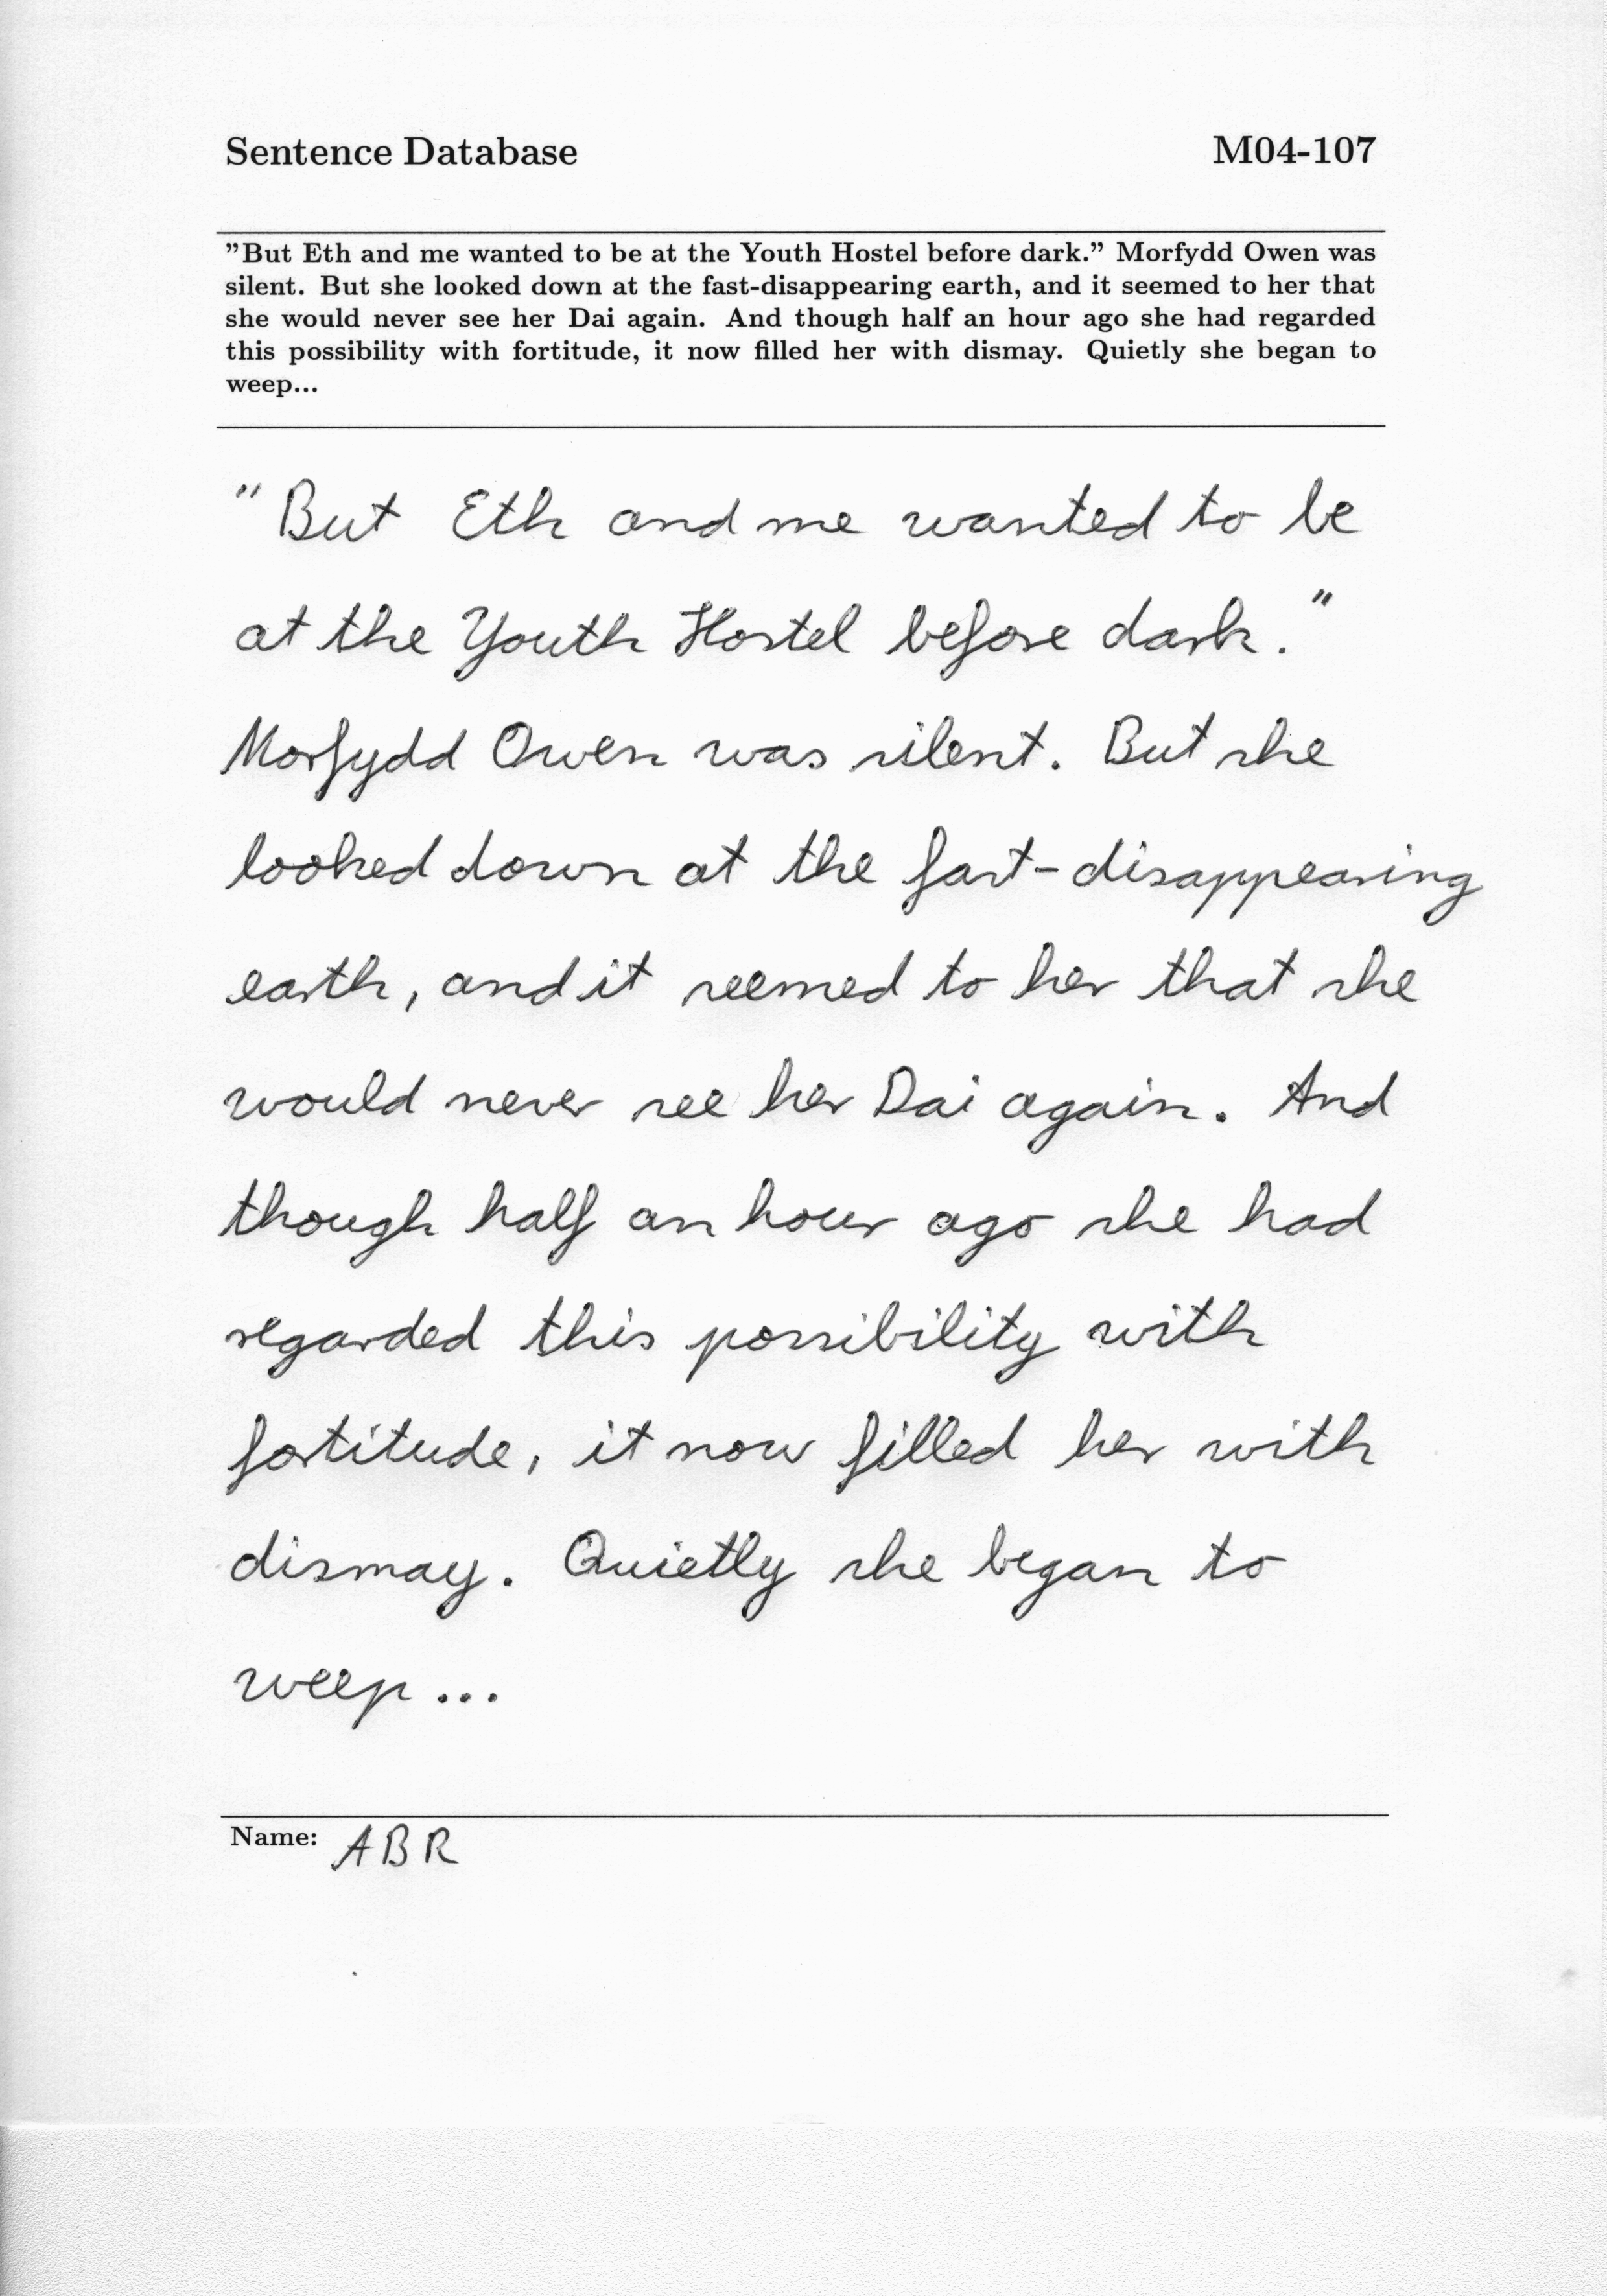 Sentence Database M04-107
"But Eth and me wanted to be at the Youth Hostel before dark." Morfydd Owen was
silent. But she looked down at the fast-disappearing earth, and it seemed to her that
she would never see her Dai again. And though half an hour ago she had regarded
this possibility with fortitude, it now filled her with dismay. Quietly she began to
weep...
"But Eth and me wanted to be
at the Youth Hostel before dark."
Morfydd Owen was silent. But she
looked down at the fast-disappearing
earth, and it seemed to her that she
would never see her Dai again. And
though half an hour ago she had
regarded this possibility with
fortitude, it now filled her with
dismay. Quietly she began to
weep...
Name: ABR